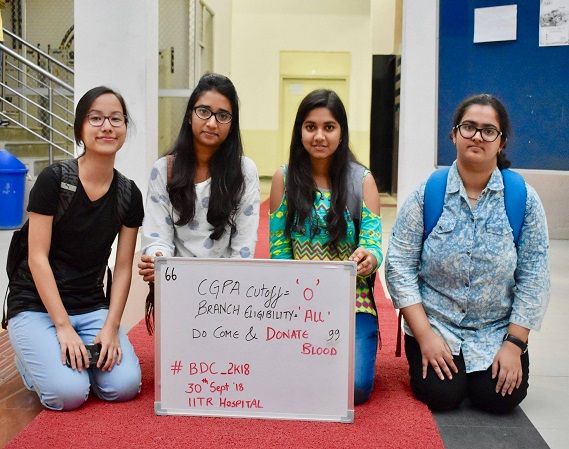 66
CGPA CUTOFF = 'O'
BRANCH ELIGIBILITY = 'ALL'
DO COME & DONATE 99
BLOOD
# BDC_2K18
30th Sept '18
IITR HOSPITAL